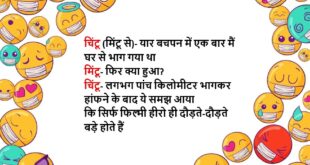 चिंटू (मिंटू से)- यार बचपन में एक बार मैं
घर से भाग गया था
मिंटू- फिर क्या हुआ?
चिंटू- लगभग पांच किलोमीटर भागकर
हांफने के बाद ये समझ आया
कि सिर्फ फिल्मी हीरो ही दौड़ते-दौड़ते
बड़े होते हैं